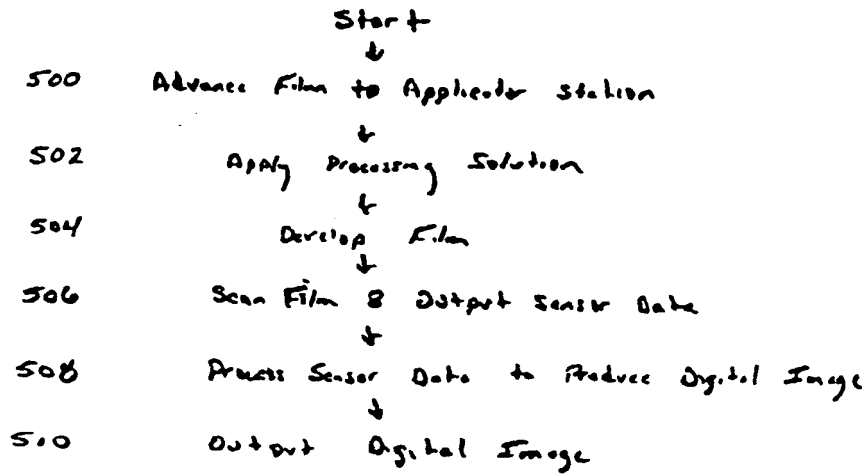 Start
↓
500 Advance Film to Applicator Station
↓
502 Apply Processing Solution
↓
504 Develop Film
↓
506 Scan Film & Output Sensor Data
↓
508 Process Sensor Data to Produce Digital Image
↓
510 Output Digital Image